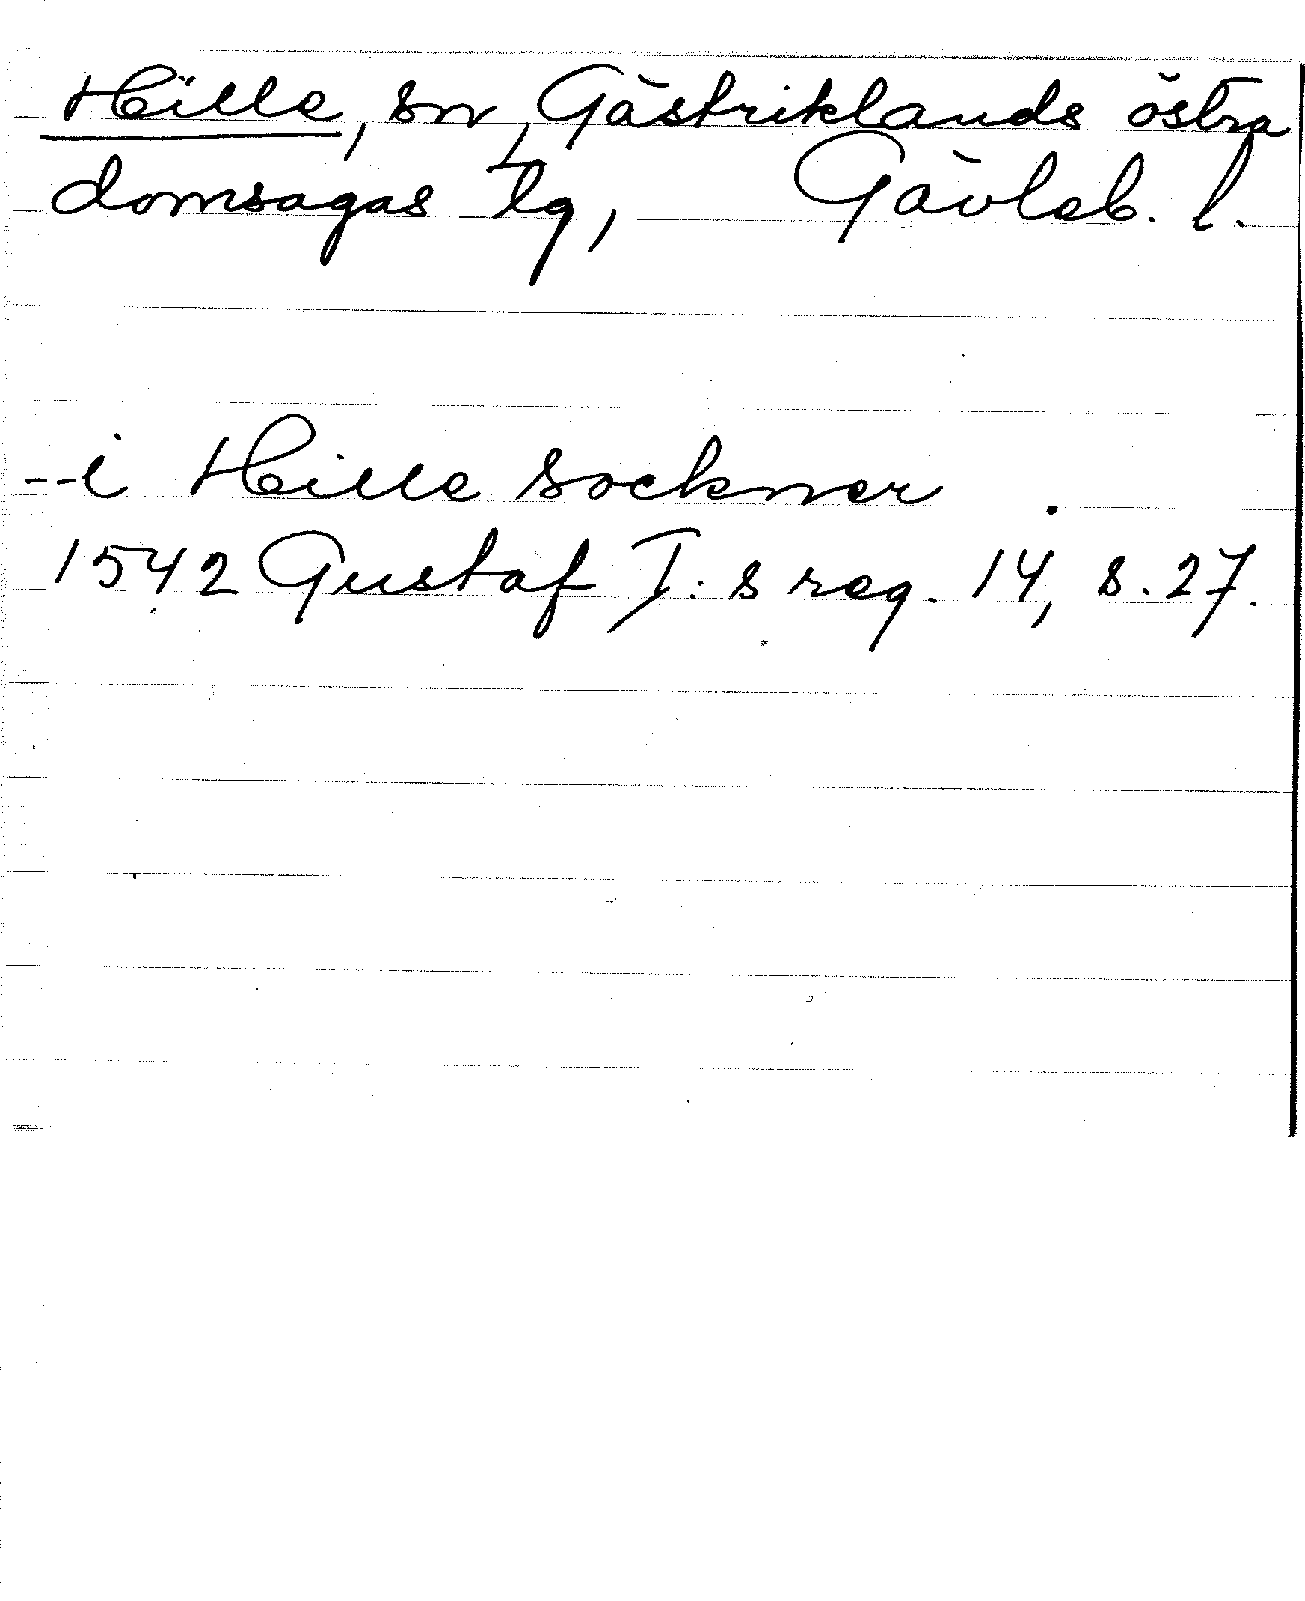 Hille, sn, Gästriklands östra
domsagas tg, Gävleb. l.
--i Hille sockner
1542 Gustaf I:s reg. 14, s. 27.